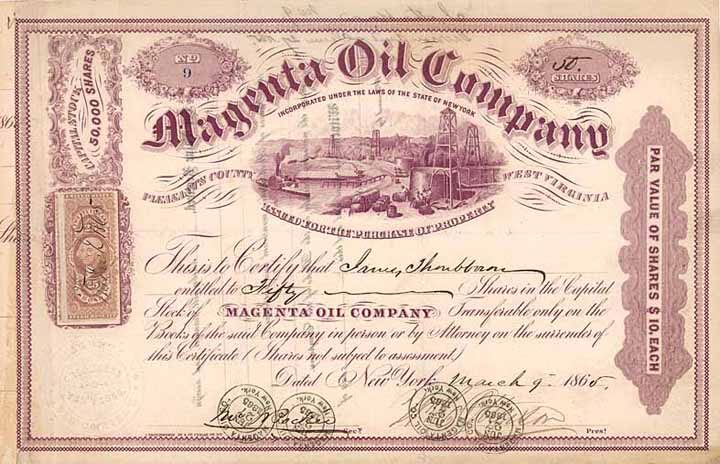 No
9
50.
SHARES
CAPITAL STOCK
50,000 SHARES
Magenta Oil Company
INCORPORATED UNDER THE LAWS OF THE STATE OF NEW YORK
PLEASANTS COUNTY
WEST VIRGINIA
ISSUED FOR THE PURCHASE OF PROPERTY
PAR VALUE OF SHARES $10. EACH
This is to Certify that James
entitled to Fifty Shares in the Capital
Stock of MAGENTA OIL COMPANY Transferable only on the
Books of the said Company in person or by Attorney on the surrender of
this Certificate (Shares not subject to assessment)
Dated New York March 9 1865.
Sec'y
Pres't
MAGENTA OIL CO.
New York.
1865